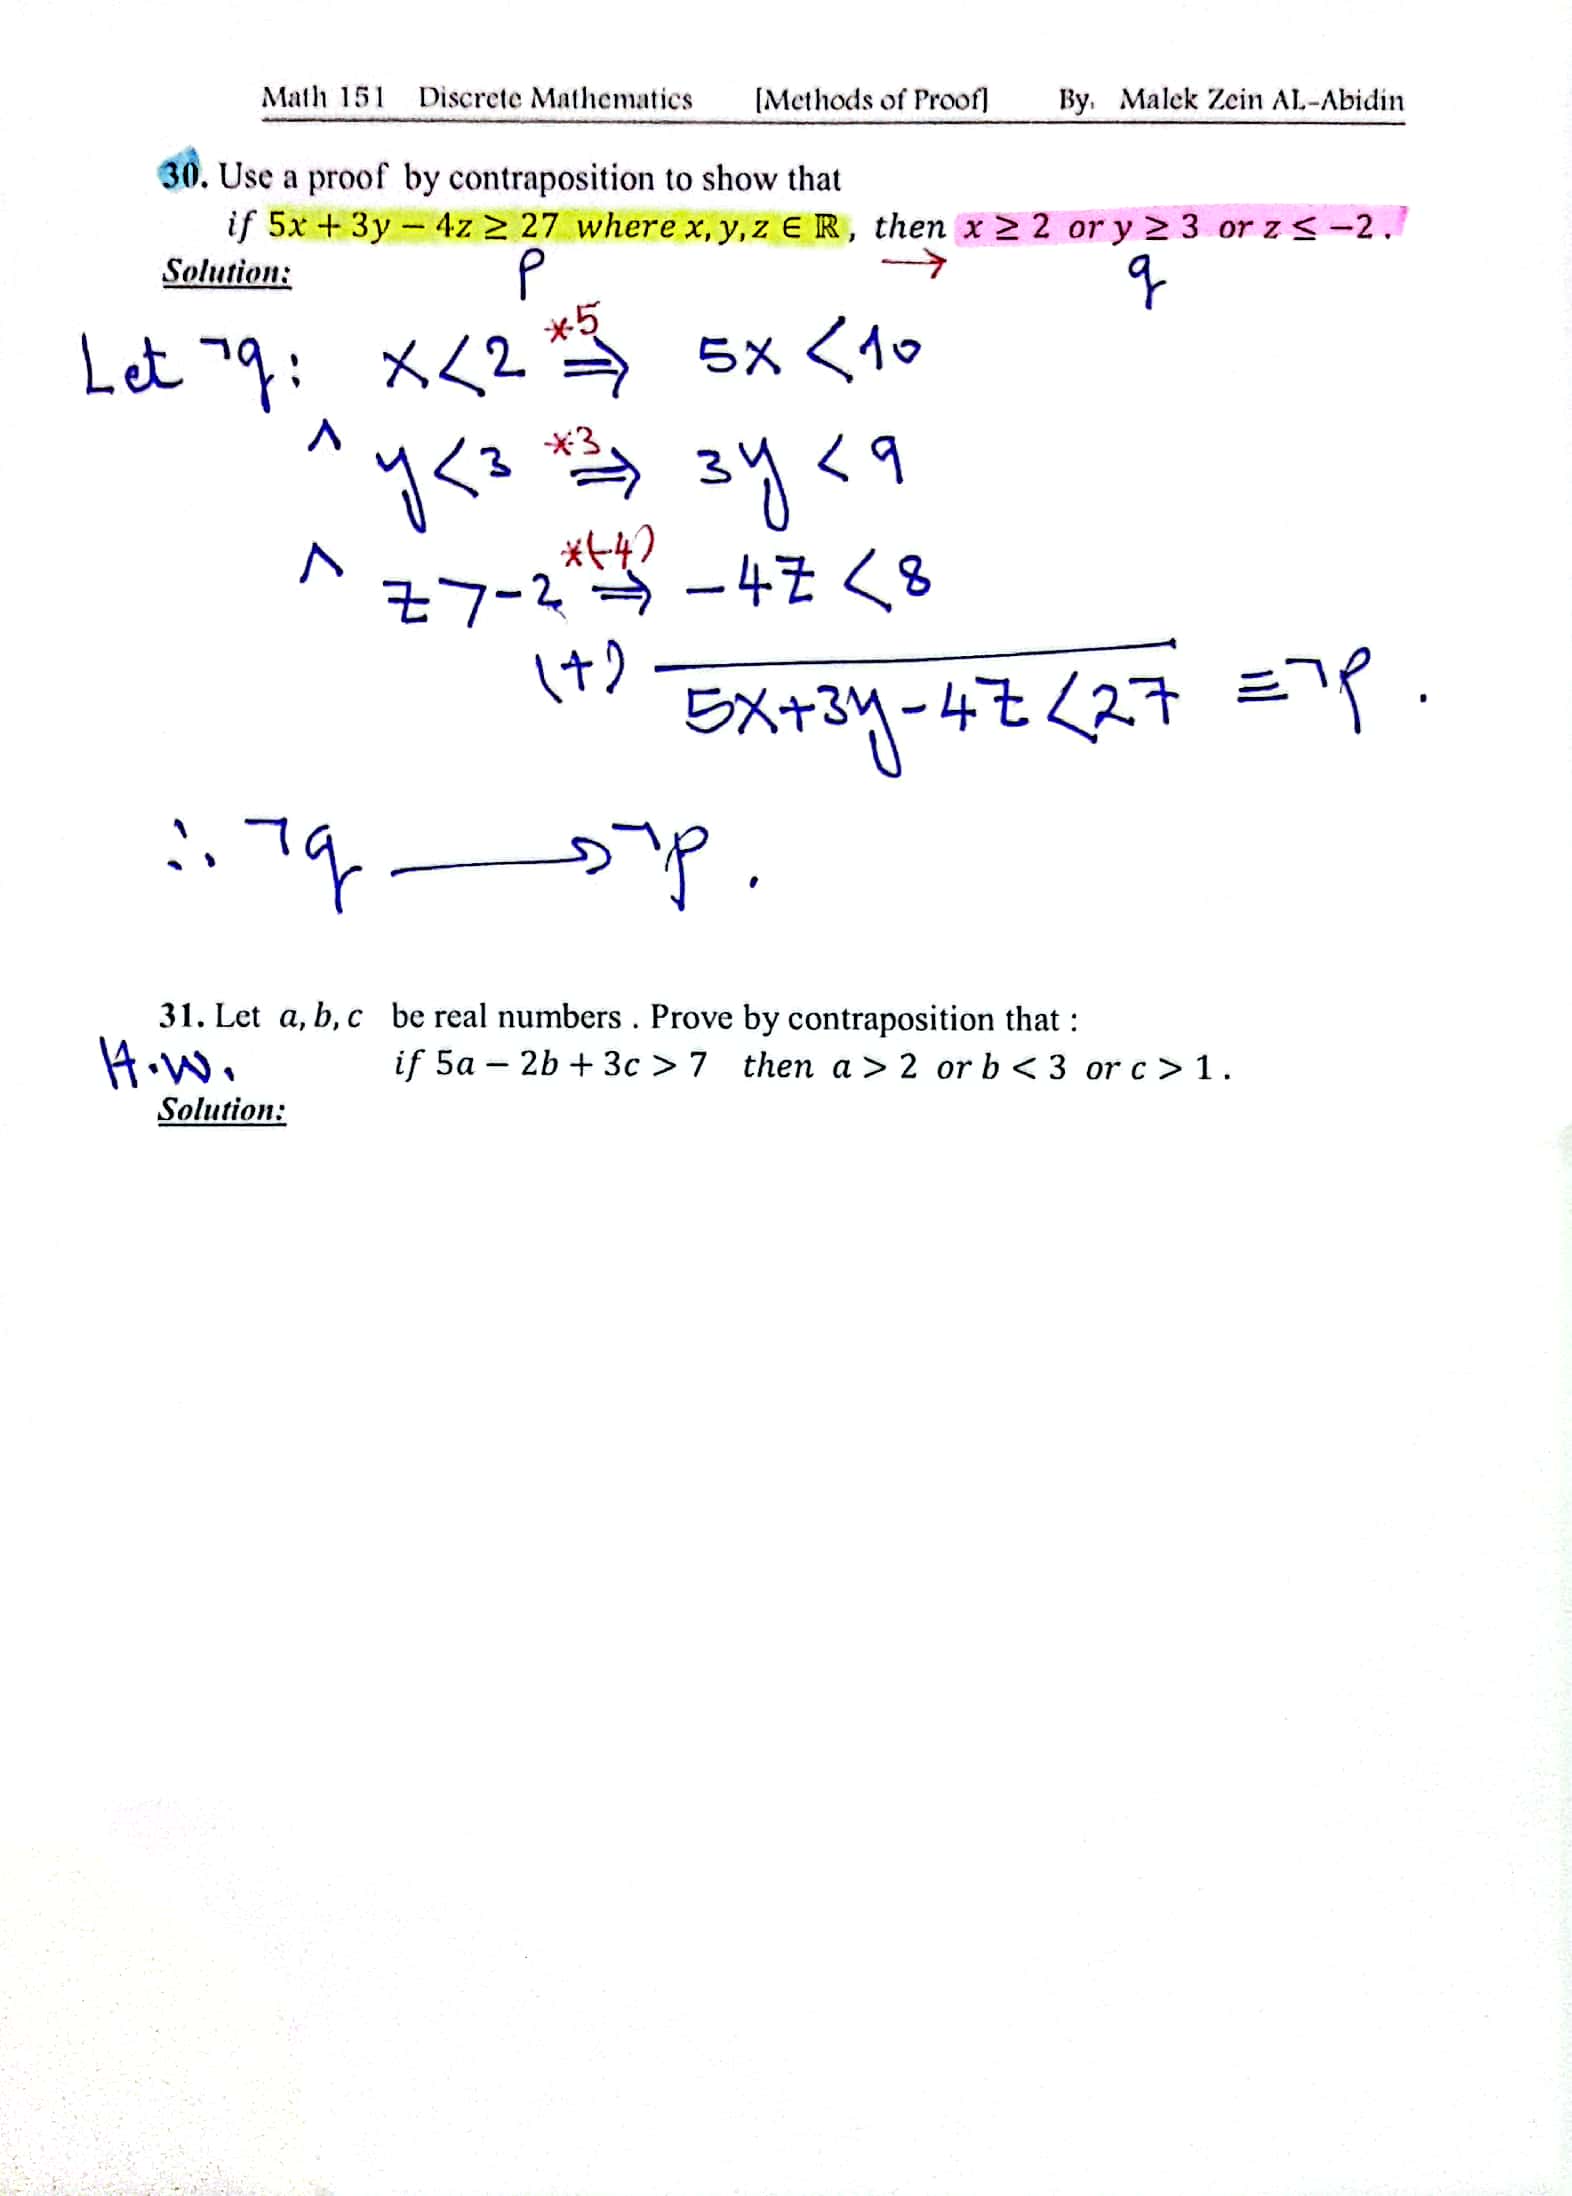 Math 151 Discrete Mathematics [Methods of Proof] By. Malek Zein AL-Abidin
30. Use a proof by contraposition to show that
if 5x + 3y − 4z ≥ 27 where x, y, z ∈ ℝ , then x ≥ 2 or y ≥ 3 or z ≤ −2 .
Solution: p → q
Let ¬q: x<2 *5 ⇒ 5x < 10
∧ y<3 *3 ⇒ 3y < 9
∧ z>-2 *(-4) ⇒ -4z < 8
(+) 5x+3y-4z<27 ≡ ¬p .
∴ ¬q → ¬p .
31. Let a, b, c be real numbers . Prove by contraposition that :
H.W. if 5a − 2b + 3c > 7 then a > 2 or b < 3 or c > 1 .
Solution: